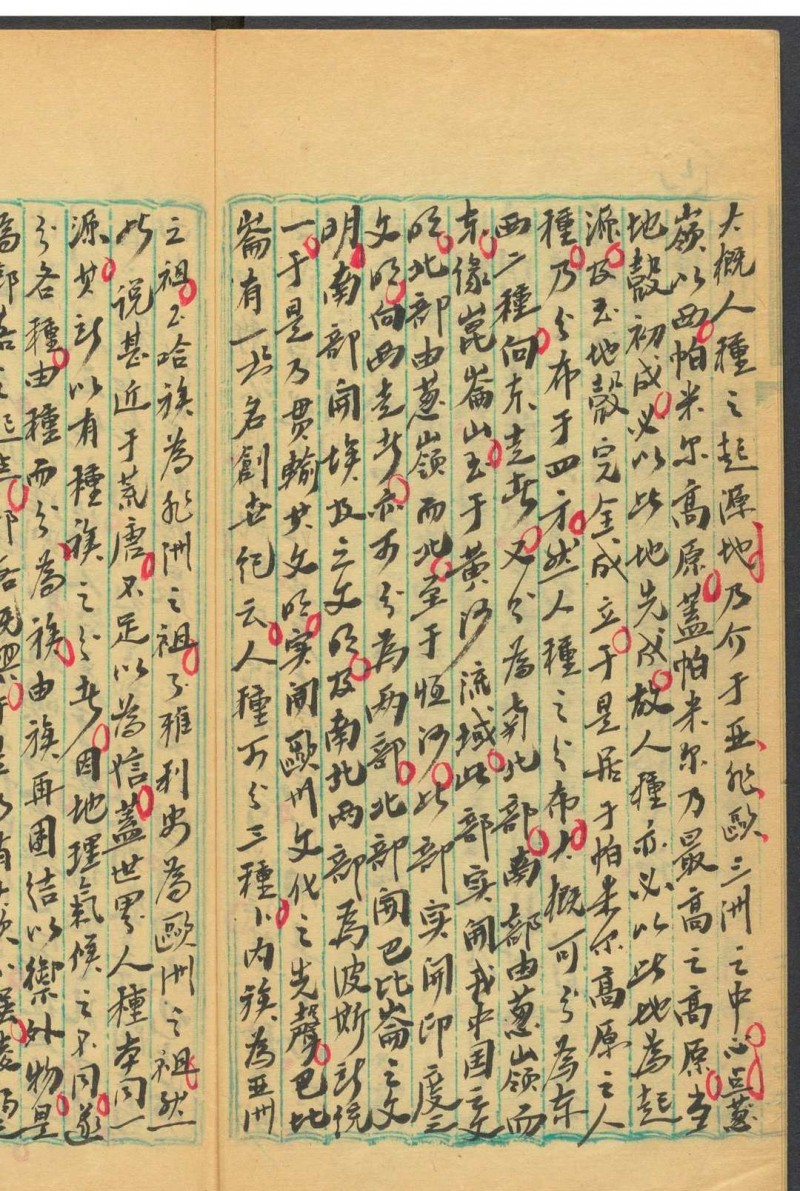 大概人種之起源地乃介于亚非歐三洲之中心点葱
嶺以西帕米尔高原蓋帕米尔乃最高之高原当
地殼初成必以此地先成故人種亦必以此地為起
源及至地殼完全成立于是居于帕米尔高原之人
種乃分布于四方然人種之分布大概可分為东
西二種向东走者又分為南北部南部由葱嶺而
东像崑崙山至于黄河流域此部实開我中国之文
明北部由葱嶺而北至于恒河此部实開印度之
文明向西走者亦可分為两部北部開巴比崙之文
明南部開埃及之文明及南北两部為波斯所统
一于是乃贯輸其文明实開歐州文化之先聲巴比
崙有一书名創世纪云人種可分三種卜内族為亚洲
之祖至哈族為非洲之祖了雅利安為歐洲之祖然
此说甚近于荒唐不足以為信蓋世界人種本同一
源其所以有種族之分者因地理氣候之不同遂
分各種由種而分為族由族再團结以禦外物是
為部